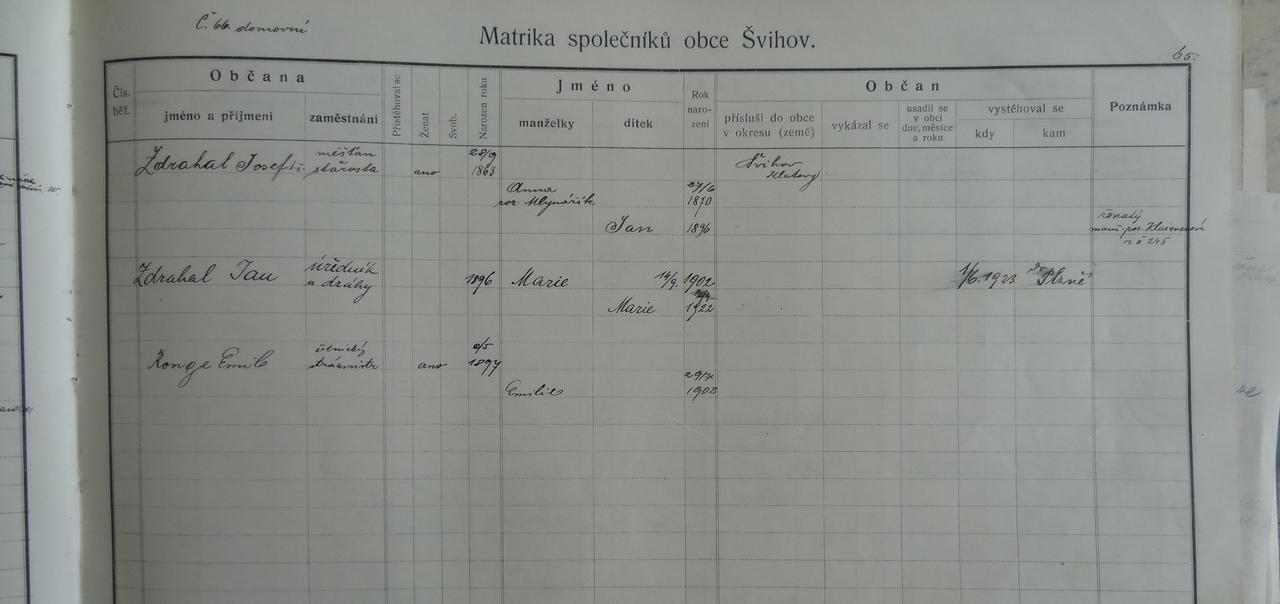 Č. 66. domovní
Matrika společníků obce Švihov.
65.
Čís. běž.
Občana
jméno a příjmení
zaměstnání
Přistěhoval se
Ženat
Svob.
Narozen roku
Jméno
manželky
dítek
Rok naro-zení
Občan
přísluší do obce v okresu (země)
vykázal se
usadil se v obci dne, měsíce a roku
vystěhoval se
kdy
kam
Poznámka
Zdrahal Josef měšťan starosta ano 22/9 1863 Švihov Klatovy
Anna roz. Mlynařík 27/6 1870
Jan 1896 ženatý
n č 245
Zdrahal Jan úředník u dráhy 1896 Marie 14/9. 1902 1/6. 1923 do Plzně
Marie 1922
Konge Emil četnický strážmistr ano 2/5 1897
Emilie 29/7 1902